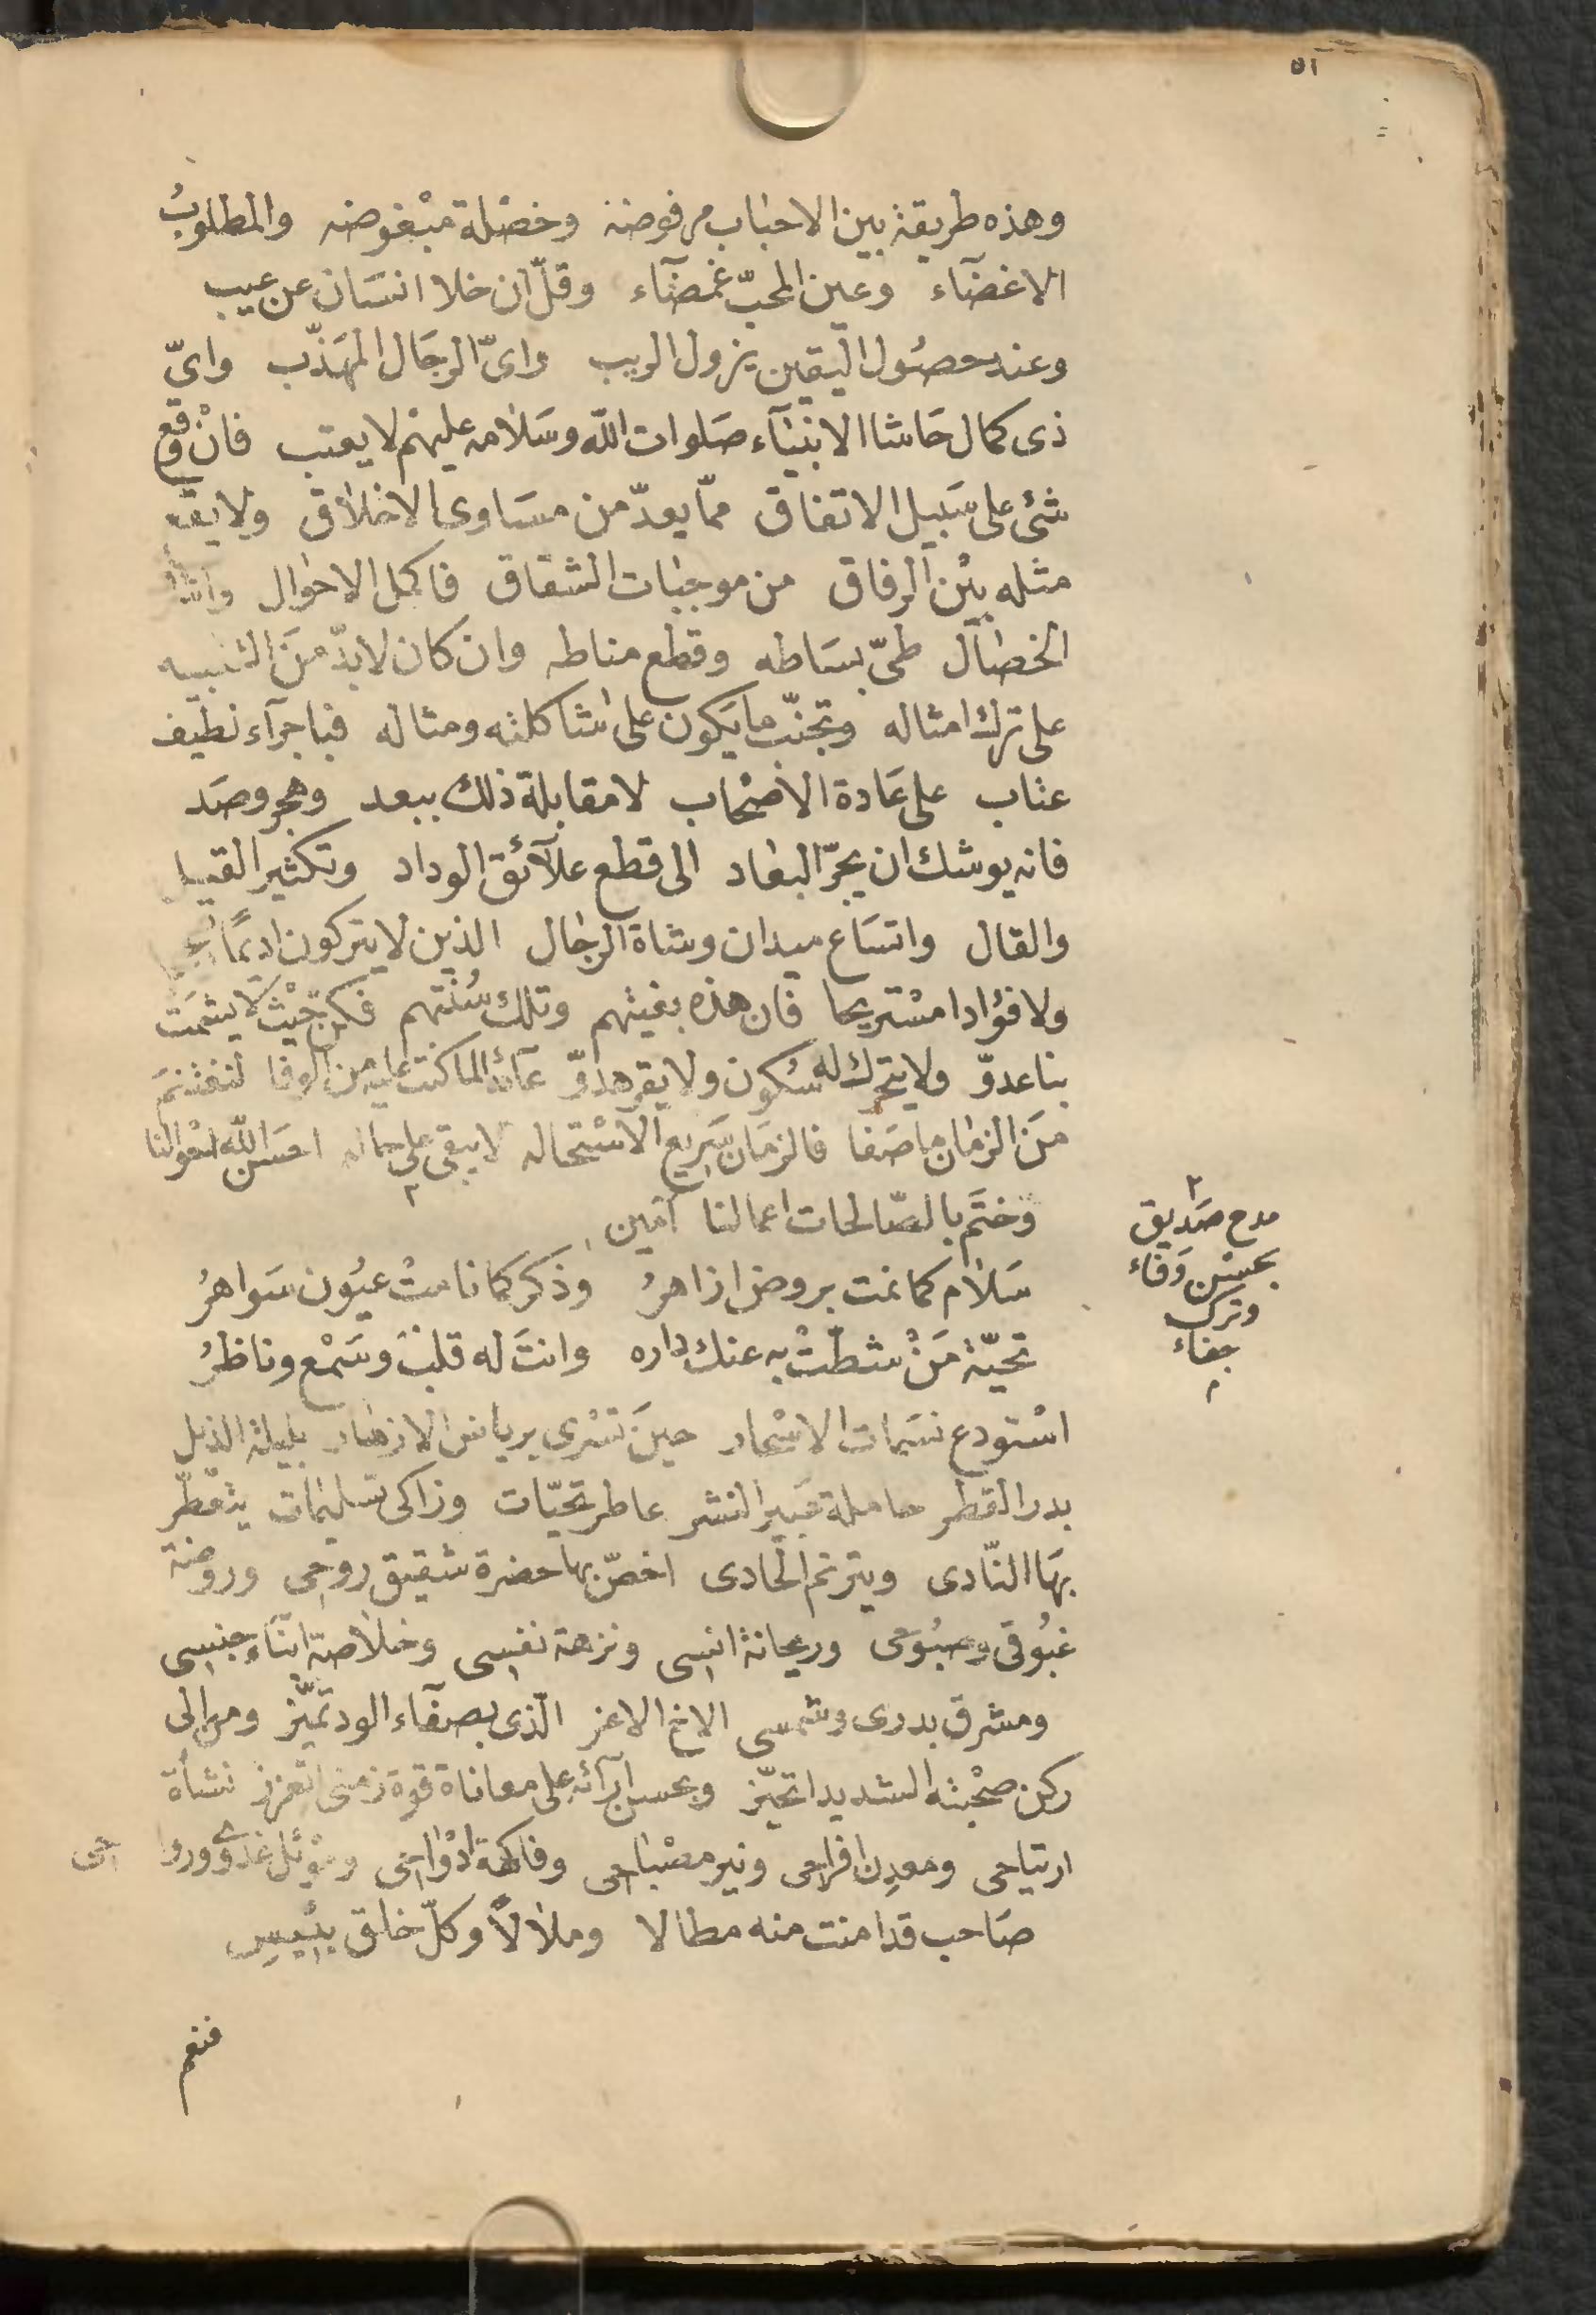 ٥١
وهذه طريقة بين الاحباب مرفوضة وخصلة مبغوضه والمطلوبُ
الاغضآء وعين المحبّ غمضآء وقلّ ان خلا انسَان عن عيب
وعند حصُول اليقين يزول الريب وايّ الرجَال المهَذّب وايّ
ذى كمال حَاشا الانبيآء صَلوات الله وسَلامه عليهم لا يعتب فانْ وقع
شئ على سَبيل الاتفاق ممّا يعدّ من مسَاوى الاخلاق ولا يقع
مثله بيْن الرفاق من موجبات الشقاق فاكمل الاحوال
الخصال طىّ بسَاطه وقطع مناطه وان كان لابدّ منَ التنبيه
على ترك امثاله وتجنّب ما يَكون على شاكلته ومثاله فباجرآء لطيف
عتاب على عَادة الاصْحاب لا مقابلة ذلك ببعد وهجر وصَد
فانه يوشك ان يجرّ البعاد الى قطع علآئق الوداد وتكثير القيل
والقال واتسَاع ميدان وشاة الرجال الذين لا يتركون اديمًا
ولا فؤادا مسْتريحا فان هذه بغيتهم وتلك سُنتهم فكن بحيْث لا يشمَت
بنا عدوّ ولا يتحرك له سكون ولا يقر هدوّ عآئدا لما كنت عليه من الوفا لنغتنمَ
منَ الزمان ما صَفا فالزمَان سَريع الاسْتحاله لا يبقى على حاله احسَن الله احوالنا
وَختَم بالصّالحات اعمالنا آمين
مدح صَديق
بحسْن وَفاء
وترك
جفاء
سَلام كما نمت بروض ازاهرُ وذكر كما نامتْ عيُون سَواهرُ
تحيّة مَنْ شطتْ به عنك داره وانتَ له قلبٌ وسَمْع وناظرُ
اسْتودع نسَمات الاسْحار حينَ تسْرى برياض الازهار بليلة الذيل
بدر القطر حاملة عَبير النشر عاطر تحيّات وزاكى تسليمات يتعَطّر
بهَا النّادى ويترنم الحادى اخصّ بها حضرة شقيق روحى وروضة
غبُوقى وصبُوحى وريحانة انسى ونزهة نفسى وخلاصة ابنآء جنسى
ومشرق بدرى وشمسى الاخ الاعز الّذى بصفآء الود تميّز ومن الى
ركن صحْبته الشديد اتحيّز وبحسن ارآئه على معاناة قوة زمنى اتعزز نشأة
ارتياحى ومعدِن افراحى ونير مصْباحى وفاكهة ادْواحى وموْئل غدوّى ورواحى
صَاحب قد امنت منه مطالا وملالاً وكلّ خلق بئيْسِ
فنعم